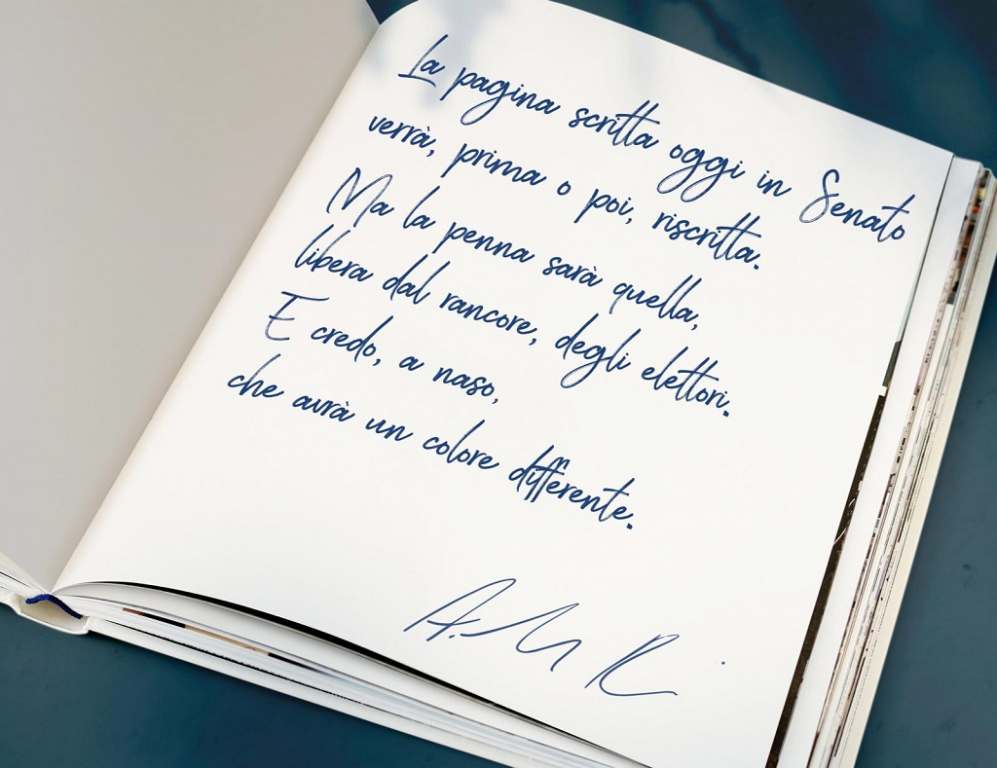 La pagina scritta oggi in Senato
verrà, prima o poi, riscritta.
Ma la penna sarà quella,
libera dal rancore, degli elettori.
E credo, a naso,
che avrà un colore differente.